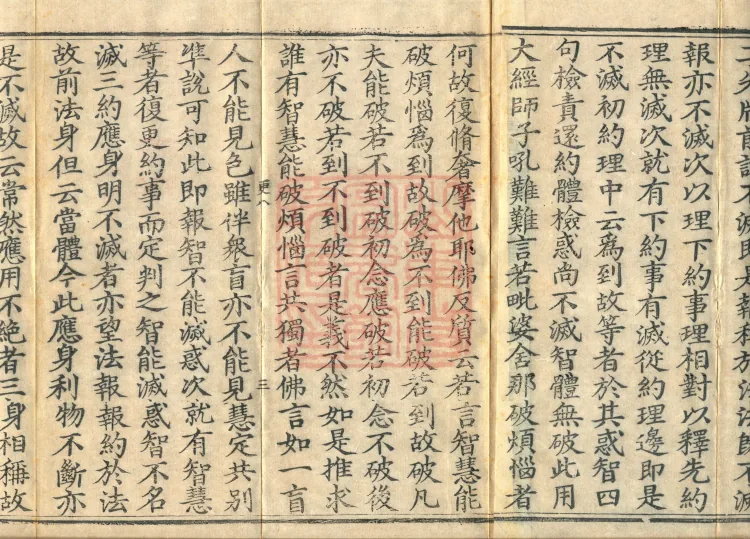 報亦不滅次以理下約事理相對以釋先約
理無滅次就有下約事有滅從約理邊即是
不滅初約理中云為到故等者於其惑智四
句檢責還約體檢惑尚不滅智體無破此用
大經師子吼難難言若毗婆舍那破煩惱者
何故復脩奢摩他耶佛反質云若言智慧能
破煩惱為到故破為不到能破若到故破凡
夫能破若不到破初念應破若初念不破後
亦不破若到不到破者是義不然如是推求
誰有智慧能破煩惱言共獨者佛言如一盲
更八 三
人不能見色雖伴衆盲亦不能見慧定共別
準說可知此即報智不能滅惑次就有智慧
等者復更約事而定判之智能滅惑智不名
滅三約應身明不滅者亦望法報報約於法
故前法身但云當體今此應身利物不斷亦
是不滅故云常然應用不絕者三身相稱故